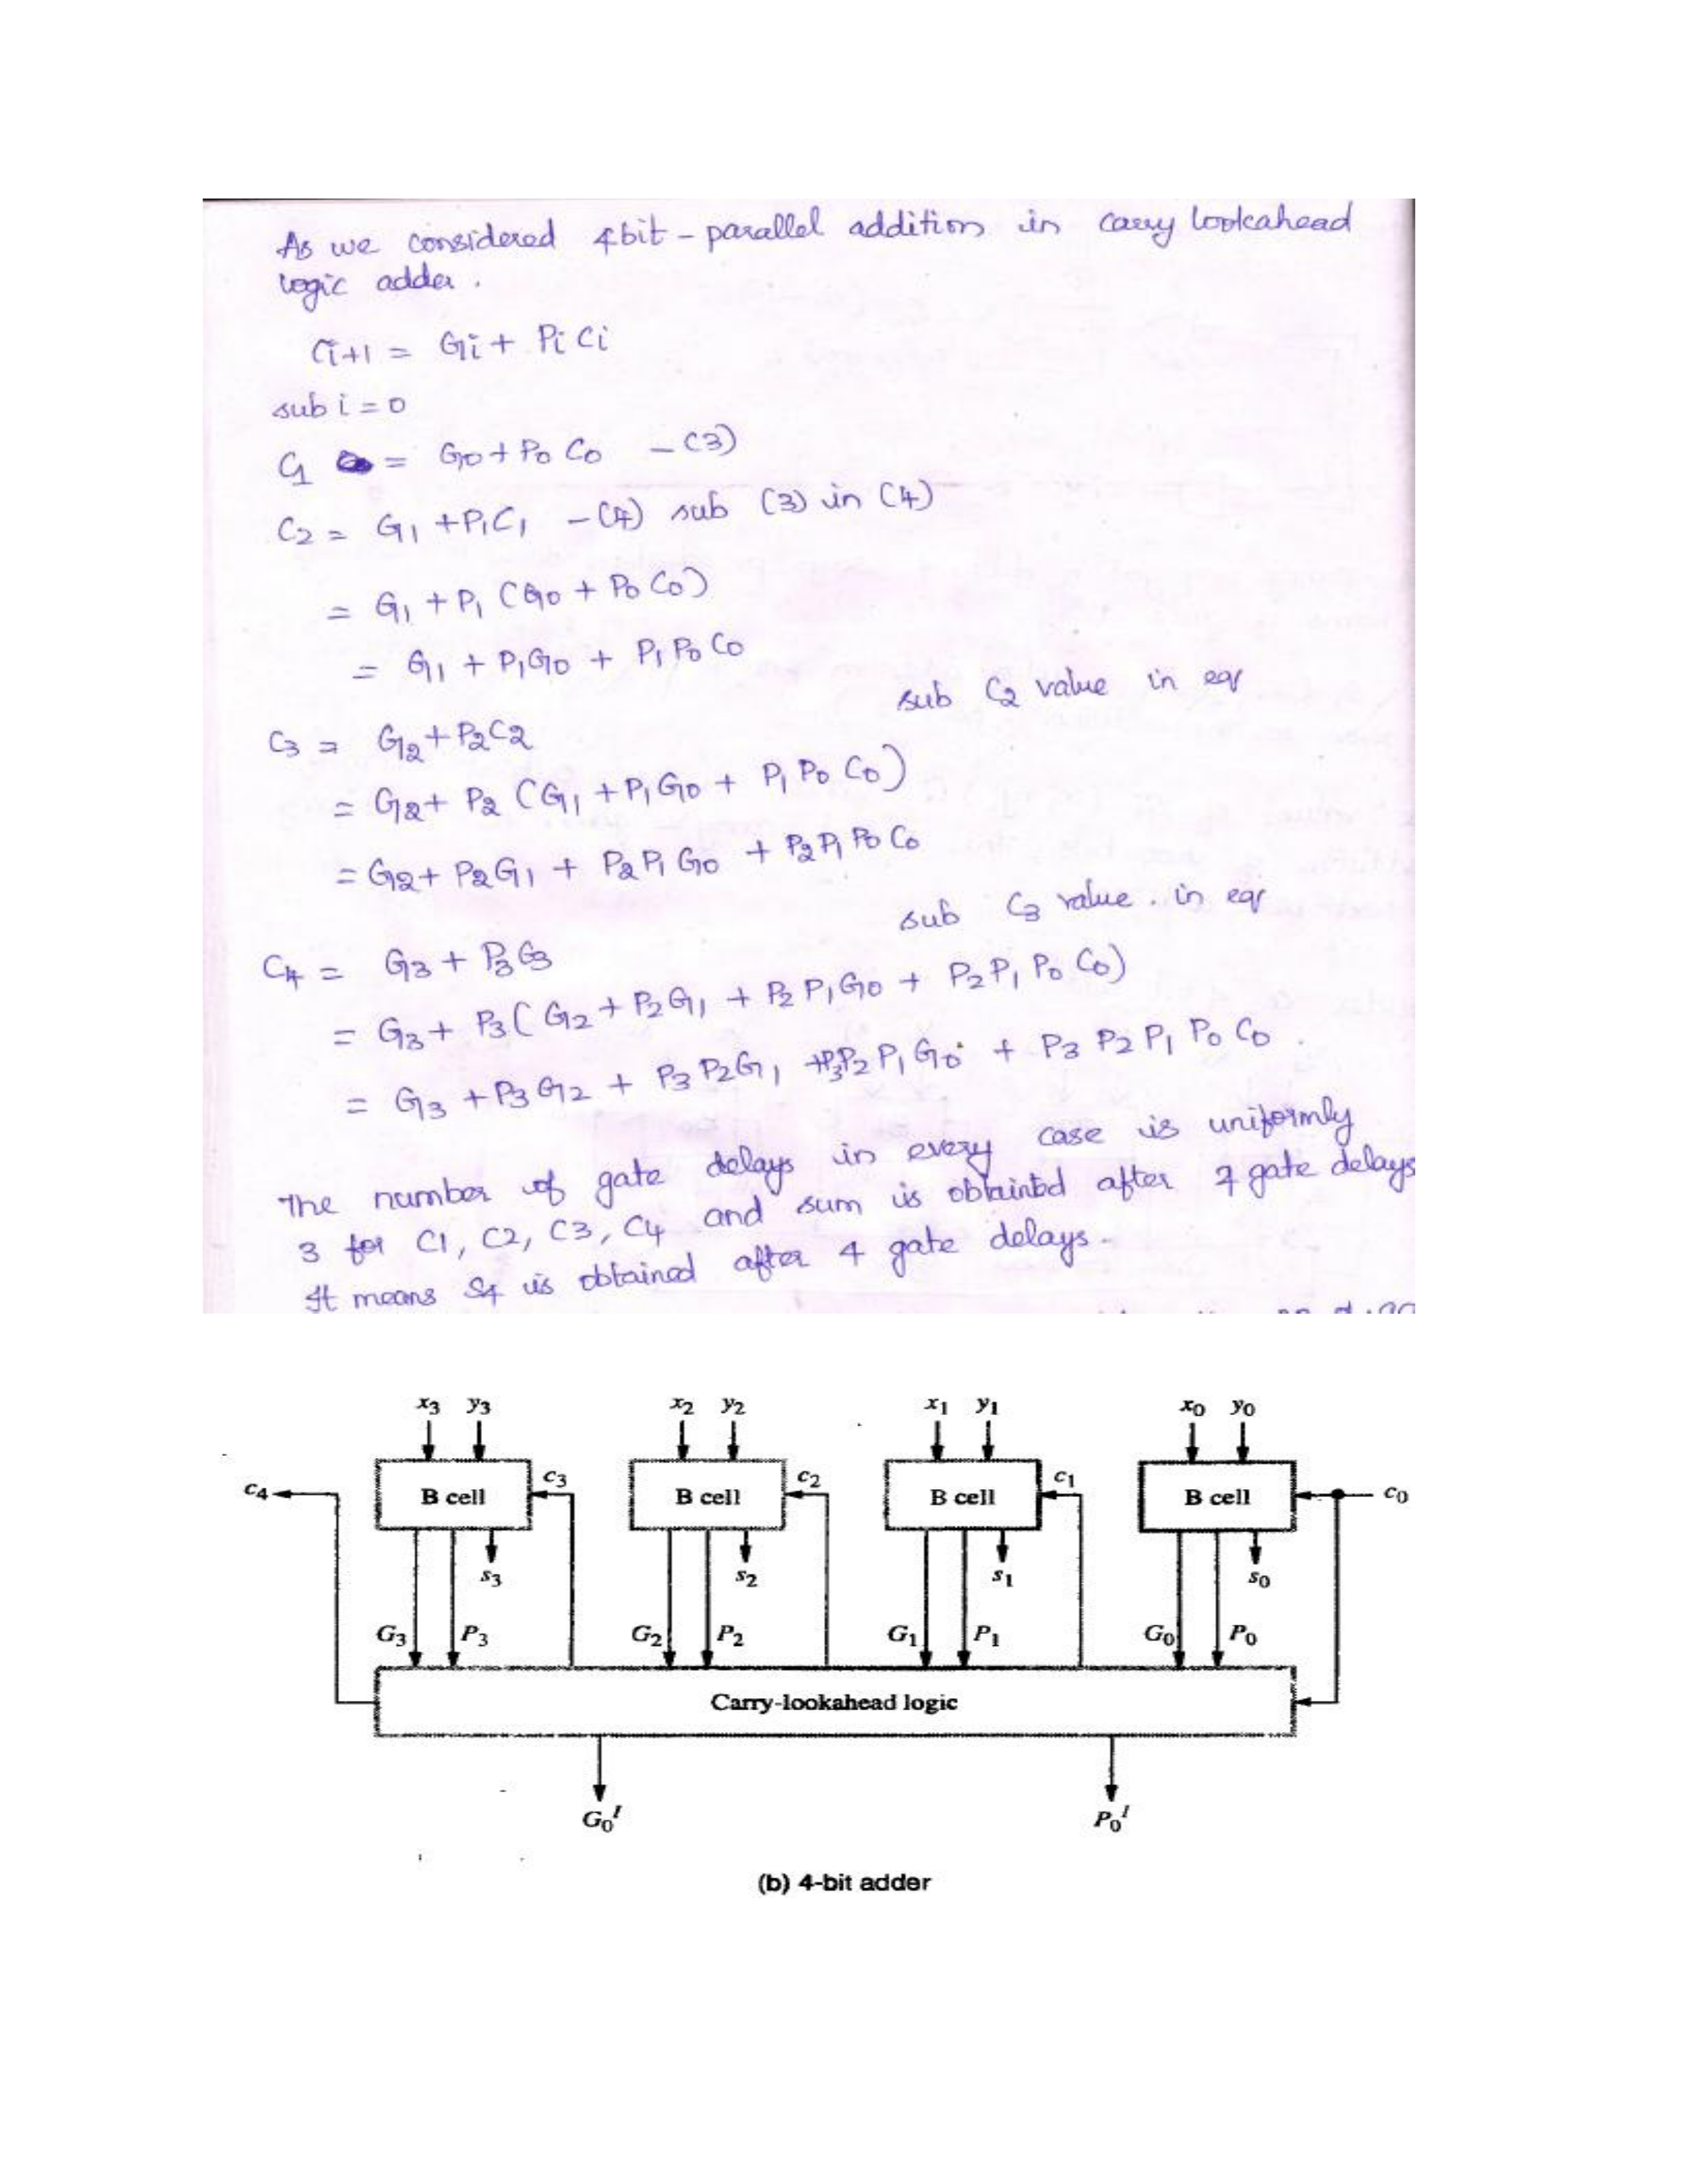 As we considered 4bit - parallel addition in carry lookahead
logic adder.
Ci+1 = Gi + Pi Ci
sub i = 0
C1 = G0 + P0 C0 - (3)
C2 = G1 + P1C1 - (4) sub (3) in (4)
= G1 + P1 (G0 + P0 C0)
= G1 + P1G0 + P1 P0 C0
sub C2 value in eq
C3 = G2 + P2C2
= G2 + P2 (G1 + P1G0 + P1 P0 C0)
= G2 + P2G1 + P2P1 G0 + P2P1 P0 C0
sub C3 value . in eq
C4 = G3 + P3 C3
= G3 + P3 (G2 + P2G1 + P2 P1G0 + P2P1 P0 C0)
= G3 + P3 G2 + P3 P2G1 + P3P2 P1 G0 + P3 P2 P1 P0 C0 .
The number of gate delays in every case is uniformly
3 for C1, C2, C3, C4 and sum is obtained after gate delays
It means S4 is obtained after 4 gate delays.
x3 y3 x2 y2 x1 y1 x0 y0
c4 B cell c3 B cell c2 B cell c1 B cell c0
s3 s2 s1 s0
G3 P3 G2 P2 G1 P1 G0 P0
Carry-lookahead logic
G0^I P0^I
(b) 4-bit adder